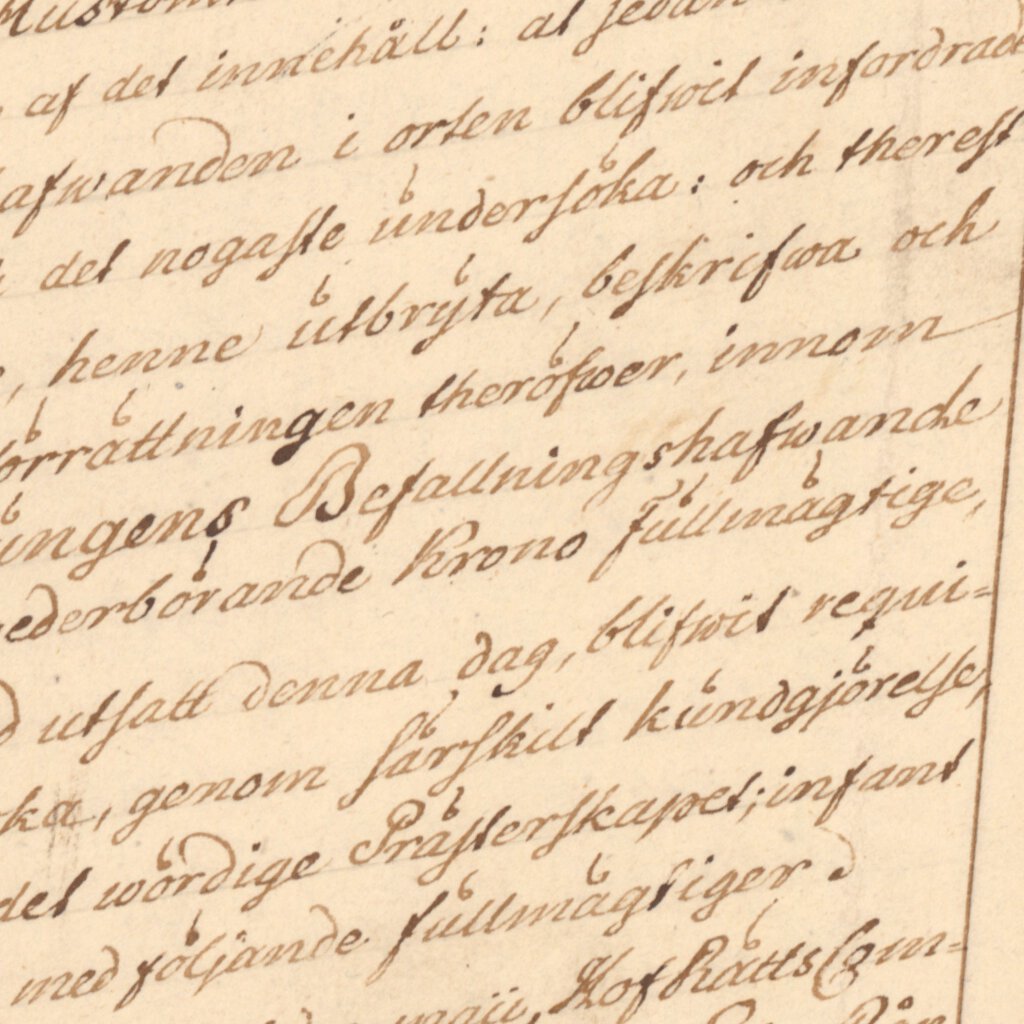 af det innehåll: at sedan
afwanden i orten blifwit infordrade
det nogaste undersöka: och therest
, henne utbryta, beskrifwa och
förrättningen theröfwer, innom
ungens Befallningshafwande
wederbörande Krono Fullmägtige,
utsatt denna dag, blifwit requi=
ka, genom särskilt kundgjörelse,
det wördige Prästerskapet; infant
med följande fullmägtiger
Hof Rätts Com=